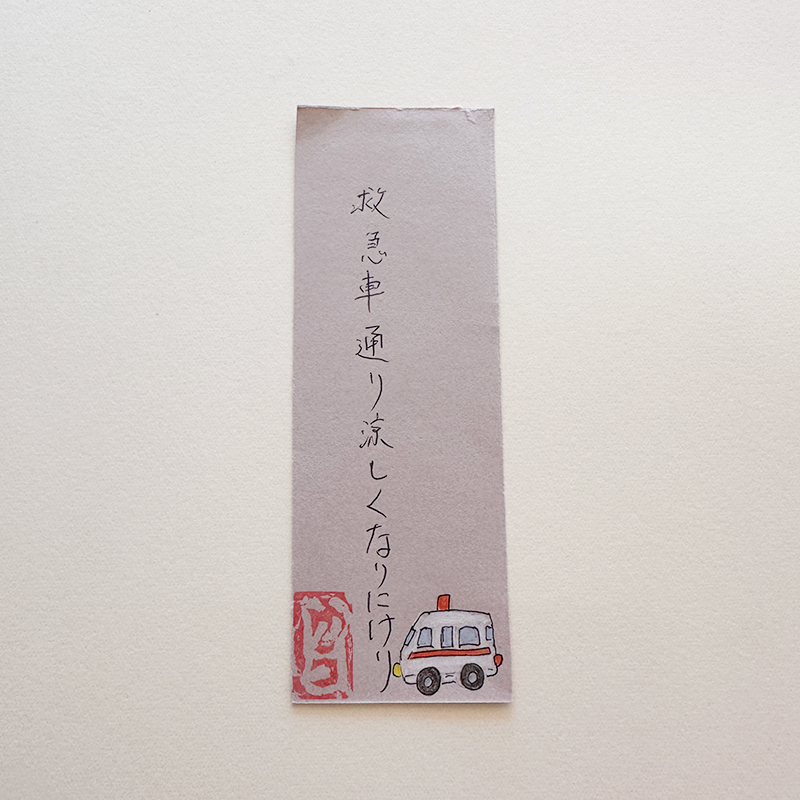 救急車通り涼しくなりにけり